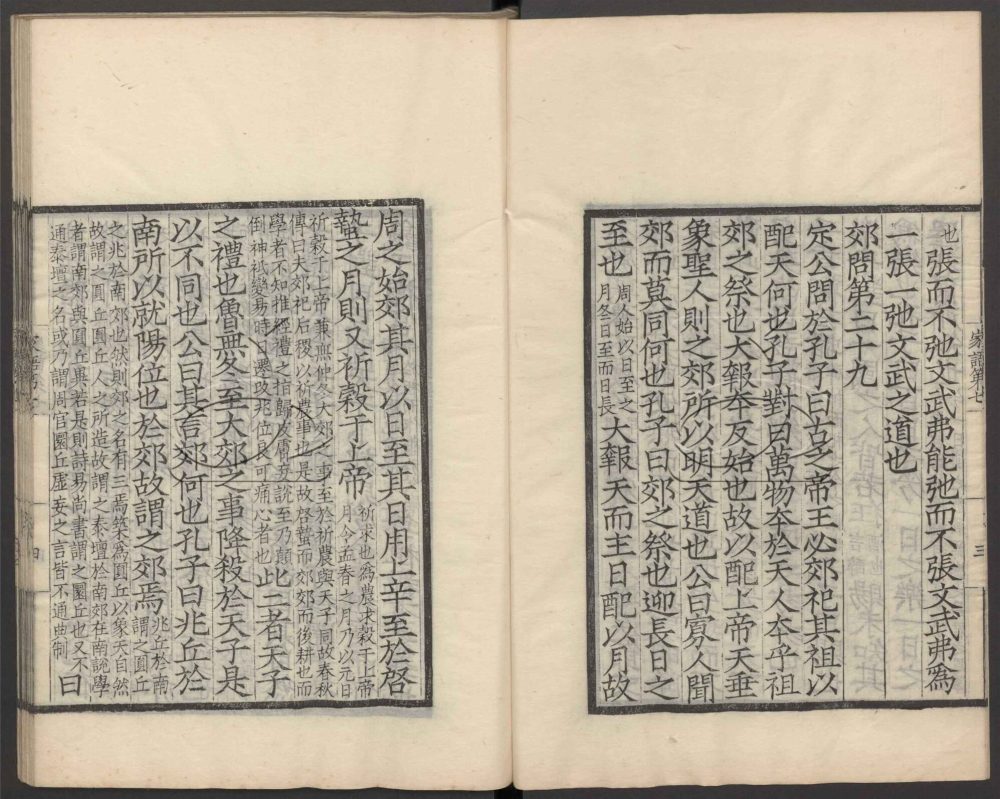 也張而不弛文武弗能弛而不張文武弗為
一張一弛文武之道也
郊問第二十九
定公問於孔子曰古之帝王必郊祀其祖以
配天何也孔子對曰萬物本於天人本乎祖
郊之祭也大報本反始也故以配上帝天垂
象聖人則之郊所以明天道也公曰寡人聞
郊而莫同何也孔子曰郊之祭也迎長日之
至也周人始以日至之月冬日至而日長大報天而主日配以月故
家語第七
三
周之始郊其月以日至其日用上辛至於啓
蟄之月則又祈穀于上帝祈求也為農求穀于上帝月令孟春之月乃以元日
祈穀于上帝兼無仲冬大郊之事至於祈農與天子同故春秋
傳曰夫郊祀后稷以祈農事也是故啓蟄而郊郊而後耕也而
學者不知推經禮之指歸皮膚妄說至乃顛
倒神祇變易時日遷改兆位良可痛心者也此二者天子
之禮也魯無冬至大郊之事降殺於天子是
以不同也公曰其言郊何也孔子曰兆丘於
南所以就陽位也於郊故謂之郊焉兆丘於南謂之圓丘
之兆於南郊也然則郊之名有三焉築為圓丘以象天自然
故謂之圓丘圓丘人之所造故謂之泰壇於南郊在南說學
者謂南郊與圓丘異若是則詩易尚書謂之圜丘也又不
通泰壇之名或乃謂周官圜丘虛妄之言皆不通典制曰
四